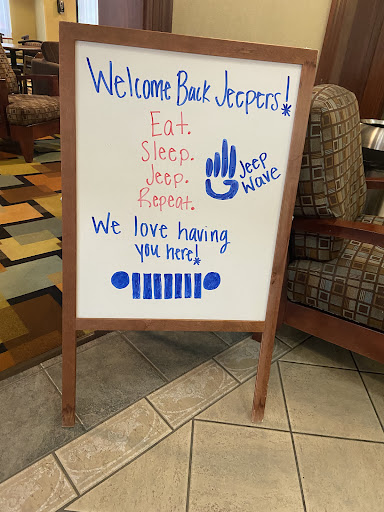 Welcome Back Jeepers!
Eat.
Sleep.
Jeep.
Repeat.
Jeep
Wave
We love having
you here!